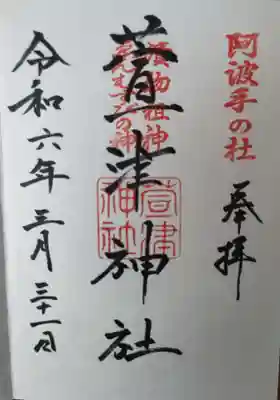 阿波手の杜
奉拝
漬物祖神
縁むすびの神
萱津神社
萱津神社
令和六年三月三十一日